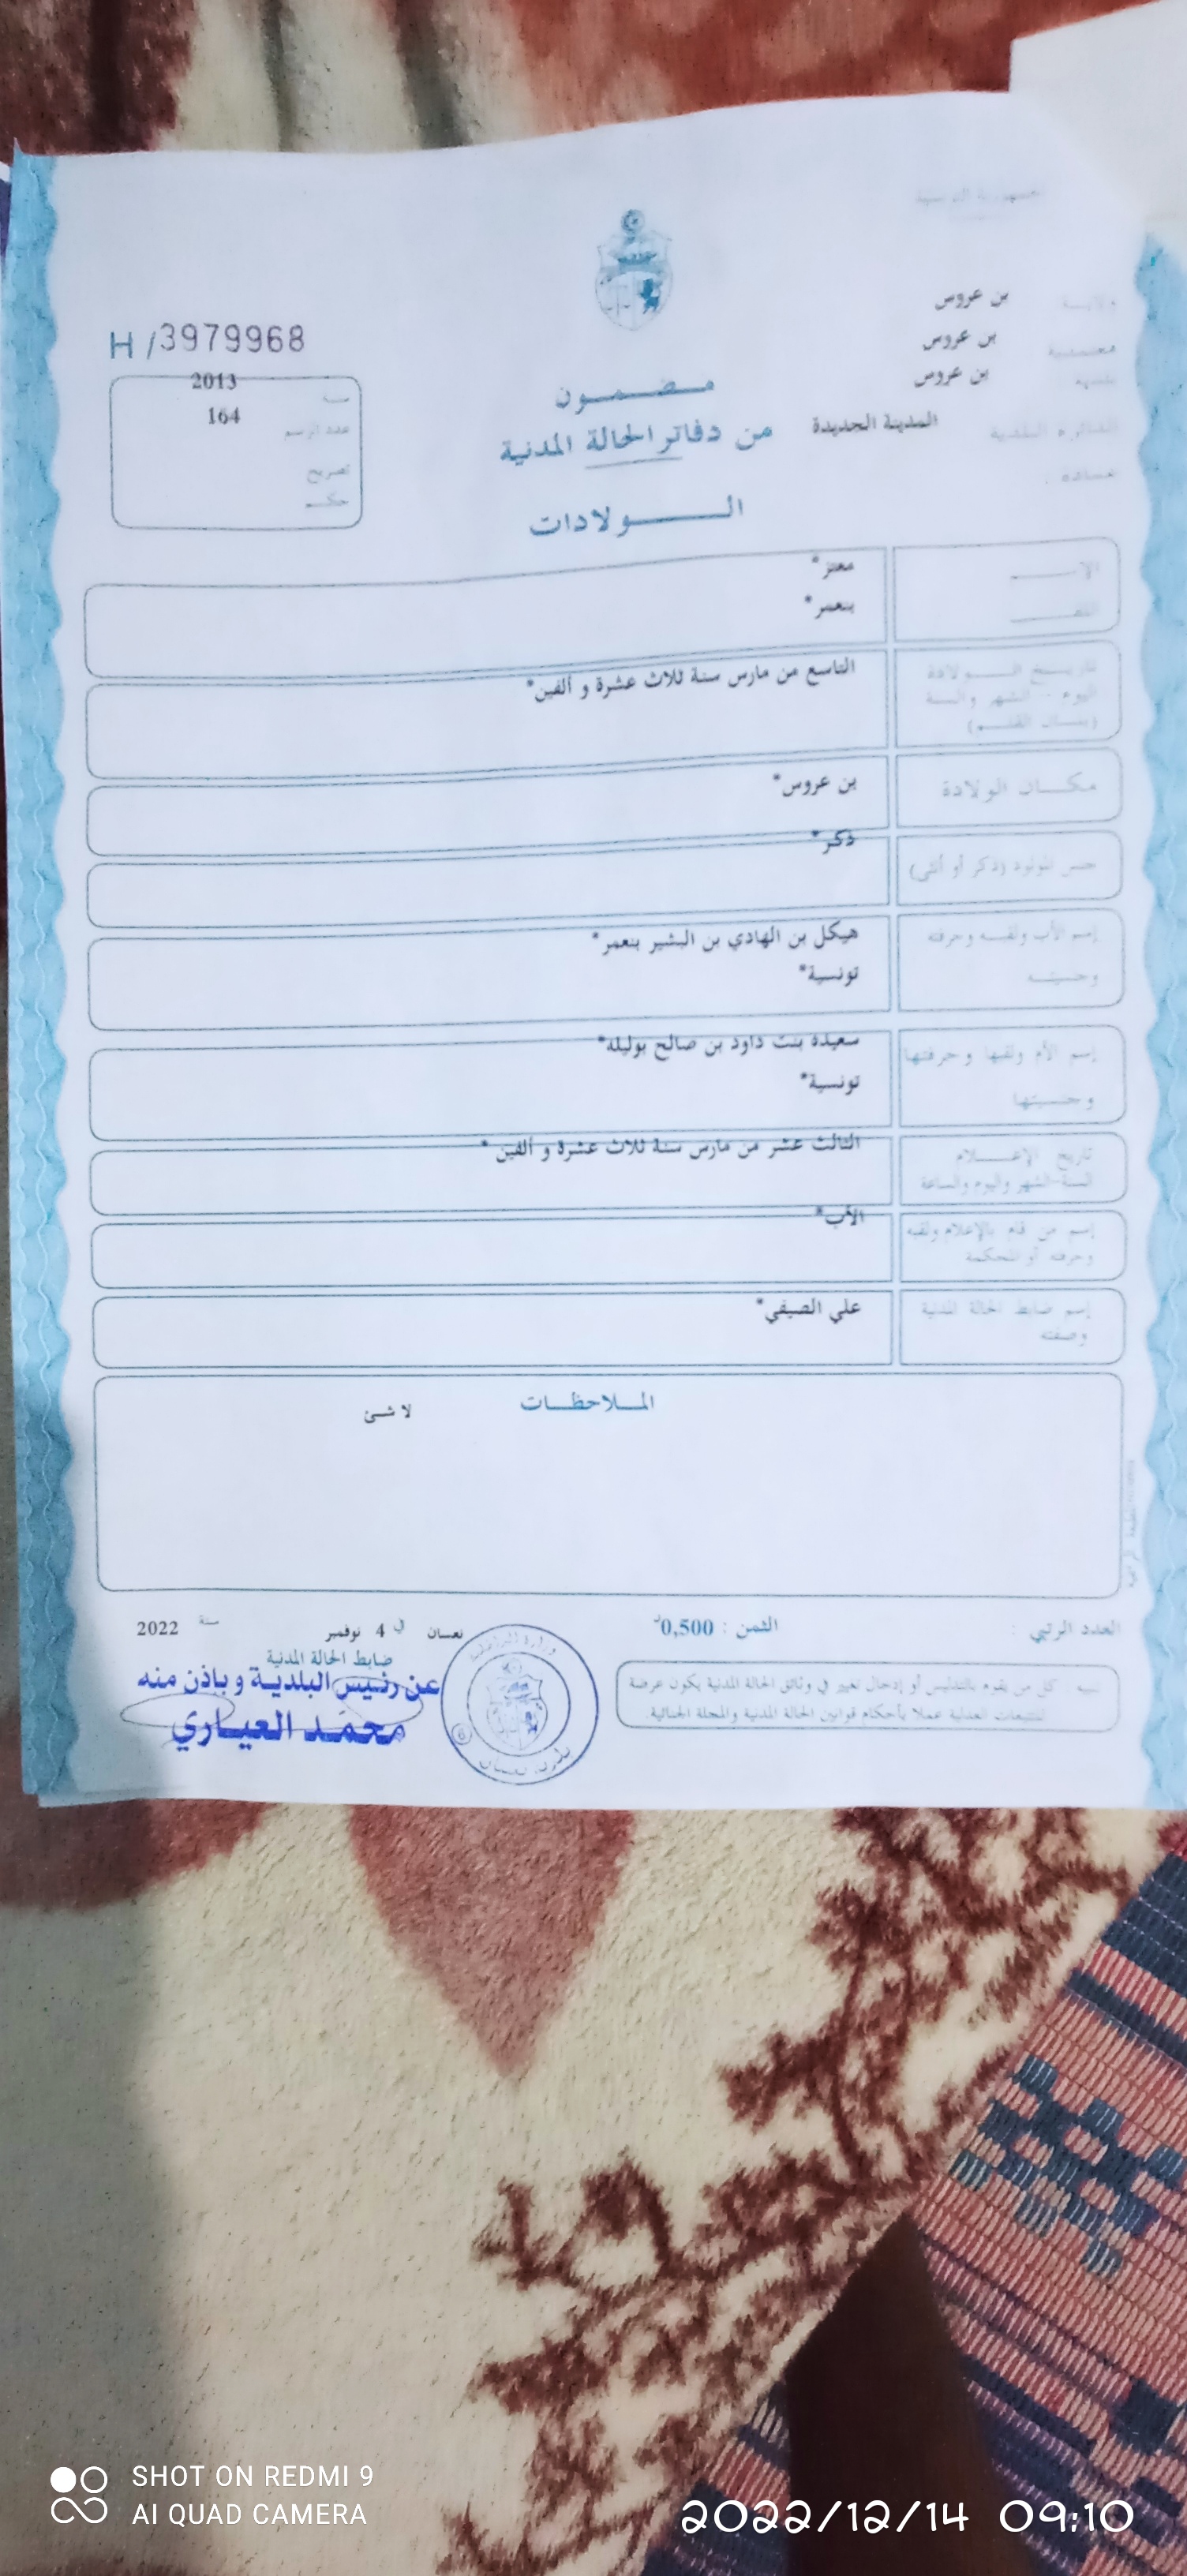 الجمهورية التونسية
ولايـــة بن عروس
معتمدية بن عروس
بلدية بن عروس
الدائرة البلدية المدينة الجديدة
عمادة :
H/3979968
سنة 2013
عدد الرسم 164
تصريح
حكم
مـضـمـون
من دفاتر الحالة المدنية
الـولادات
الإسم معتز*
اللقب بنعمر*
تاريخ الولادة
اليوم - الشهر والسنة
(بلسان القلم)
التاسع من مارس سنة ثلاث عشرة و ألفين*
مكـان الولادة بن عروس*
جنس المولود (ذكر أو أنثى) ذكر*
إسم الأب ولقبه وحرفته هيكل بن الهادي بن البشير بنعمر*
وجنسيته تونسية*
إسم الأم ولقبها وحرفتها سعيدة بنت داود بن صالح بوليلة*
وجنسيتها تونسية*
تاريخ الإعلام
السنة-الشهر واليوم والساعة
الثالث عشر من مارس سنة ثلاث عشرة و ألفين *
إسم من قام بالإعلام ولقبه
وحرفته أو المحكمة
الأب*
إسم ضابط الحالة المدنية
وصفته
علي الصيفي*
المـلاحظـات
لا شئ
العدد الرتبي :
الثمن : 0,500د
نعسان في 4 نوفمبر سنة 2022
ضابط الحالة المدنية
عن رئيس البلدية وباذن منه
محمد العياري
تنبيه كل من يقوم بالتدليس أو إدخال تغيير في وثائق الحالة المدنية يكون عرضة
للتتبعات العدلية عملا بأحكام قوانين الحالة المدنية والمجلة الجنائية.
بلدية نعسان
6
SHOT ON REDMI 9
AI QUAD CAMERA
2022/12/14 09:10